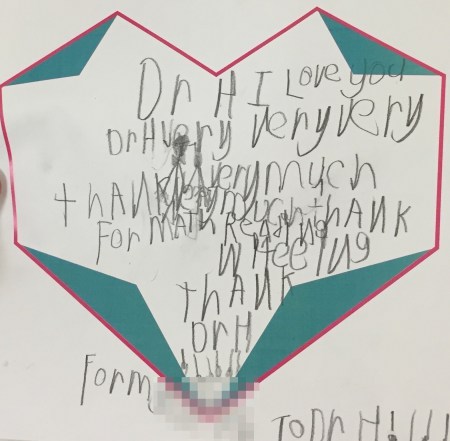 Dr H I Love you
Dr H very very very
very much
thANK very much thANK
For MATH ReADING
WHeeING
thANK
Dr H
!!!!!!
Form
To Dr H!!!!